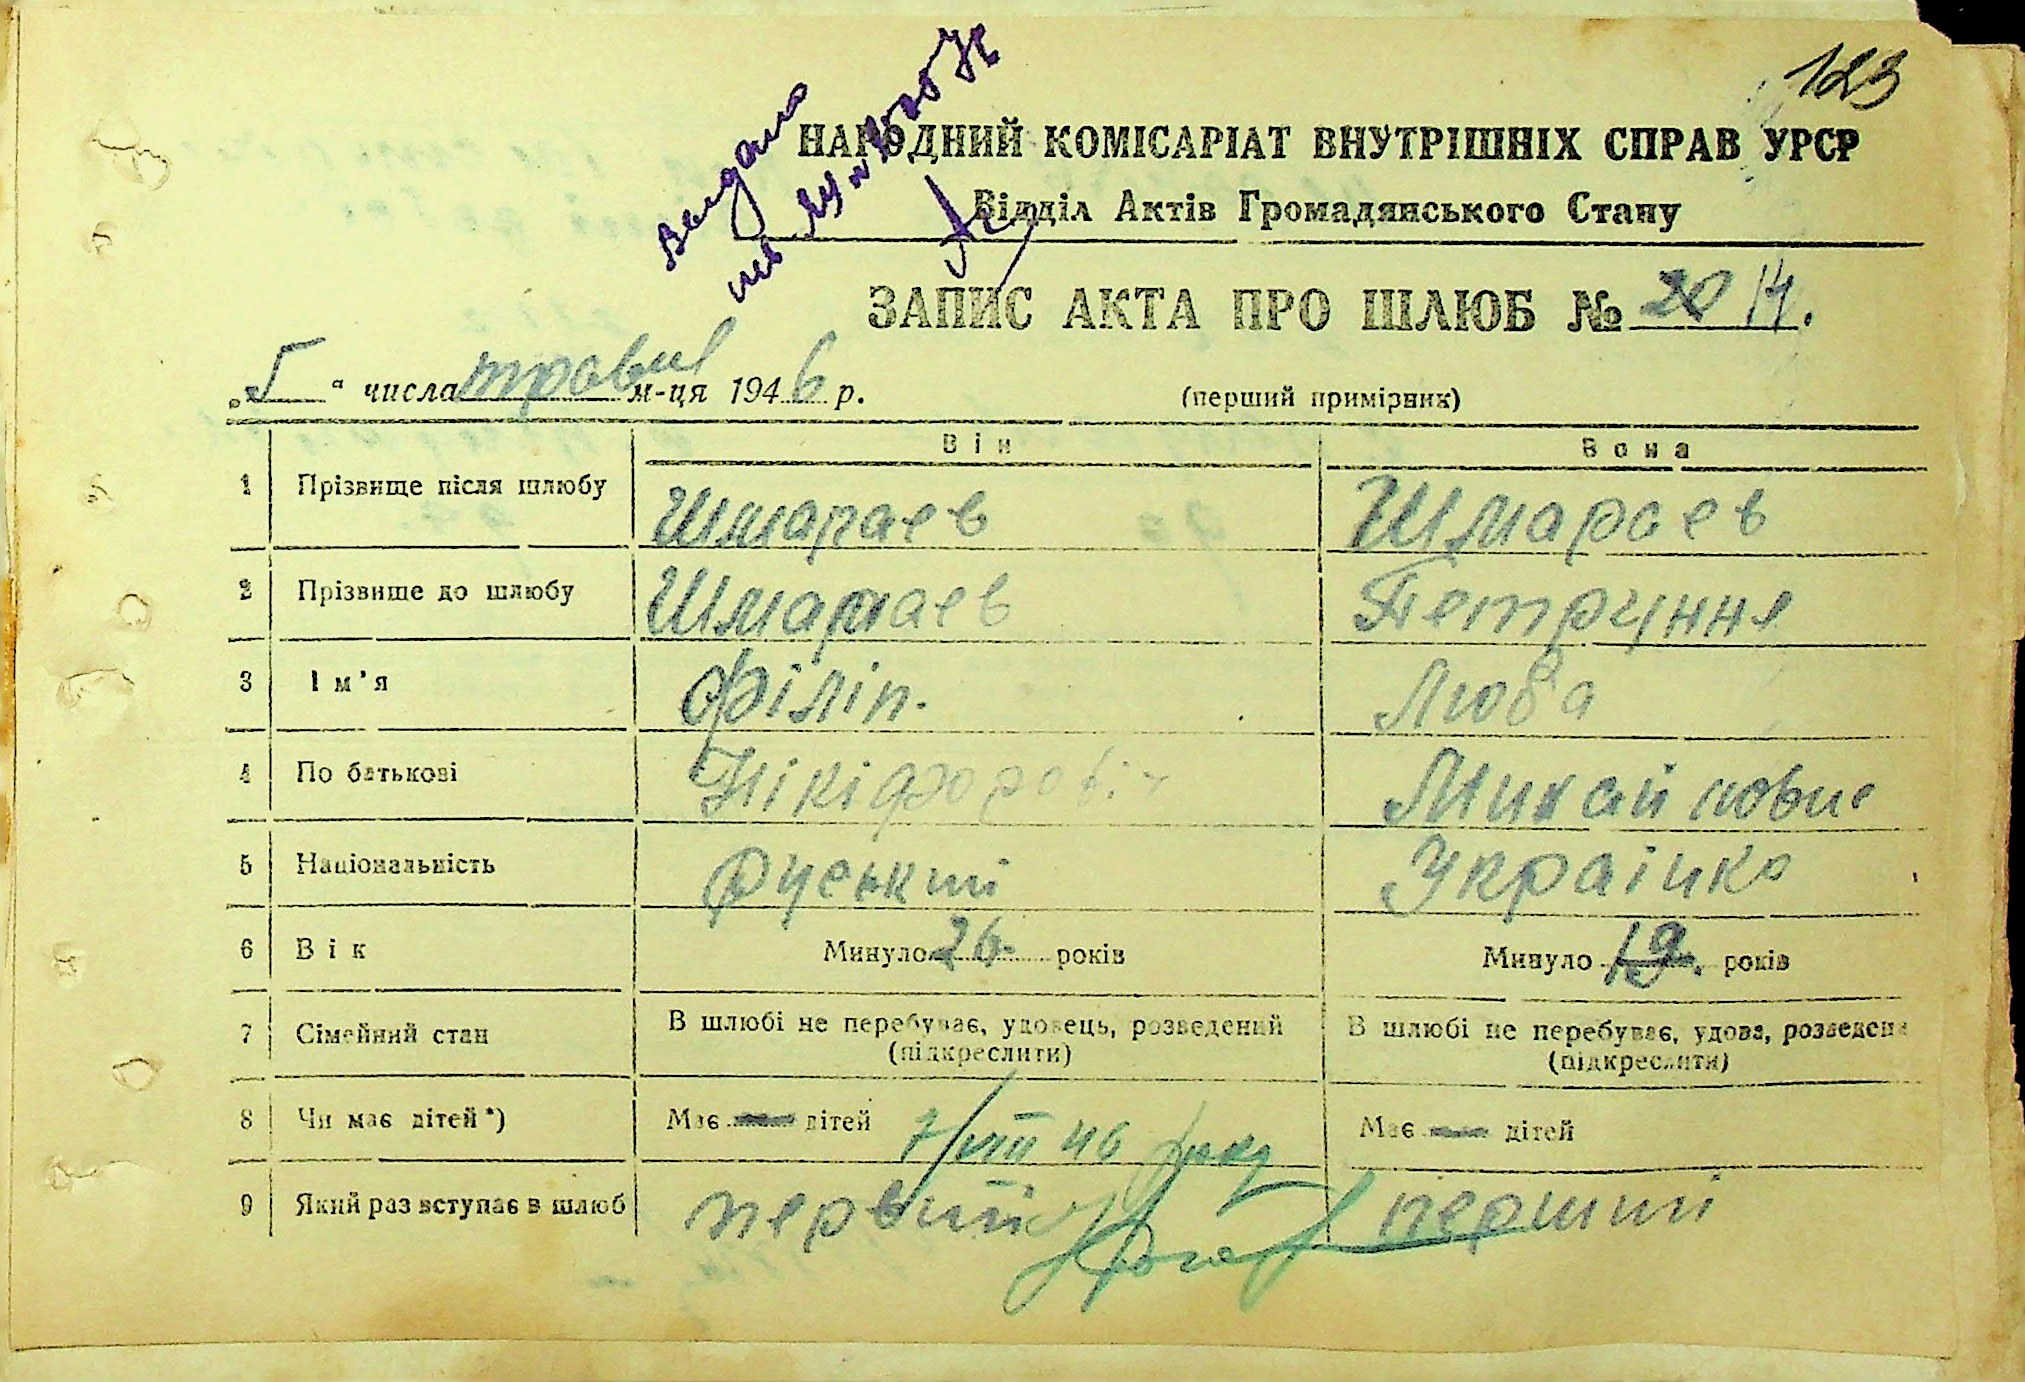 123
Видано
НАРОДНИЙ КОМІСАРІАТ ВНУТРІШНІХ СПРАВ УРСР
Відділ Актів Громадянського Стану
ЗАПИС АКТА ПРО ШЛЮБ № 20 14.
„5“ числа травня м-ця 1946 р. (перший примірник)
Він Вона
1 Прізвище після шлюбу Шмараев Шмараев
2 Прізвище до шлюбу Шмараев Петруння
3 Ім'я Філіп. Люба
4 По батькові Нікіфорович Михайловна
5 Національність Руський Украінка
6 Вік Минуло 26 років Минуло 19. років
7 Сімейний стан В шлюбі не перебуває, удовець, розведений В шлюбі не перебуває, удова, розведена
(підкреслити) (підкреслити)
8 Чи має дітей *) Має — дітей Має — дітей
7/VIII 46
9 Який раз вступає в шлюб первий перший